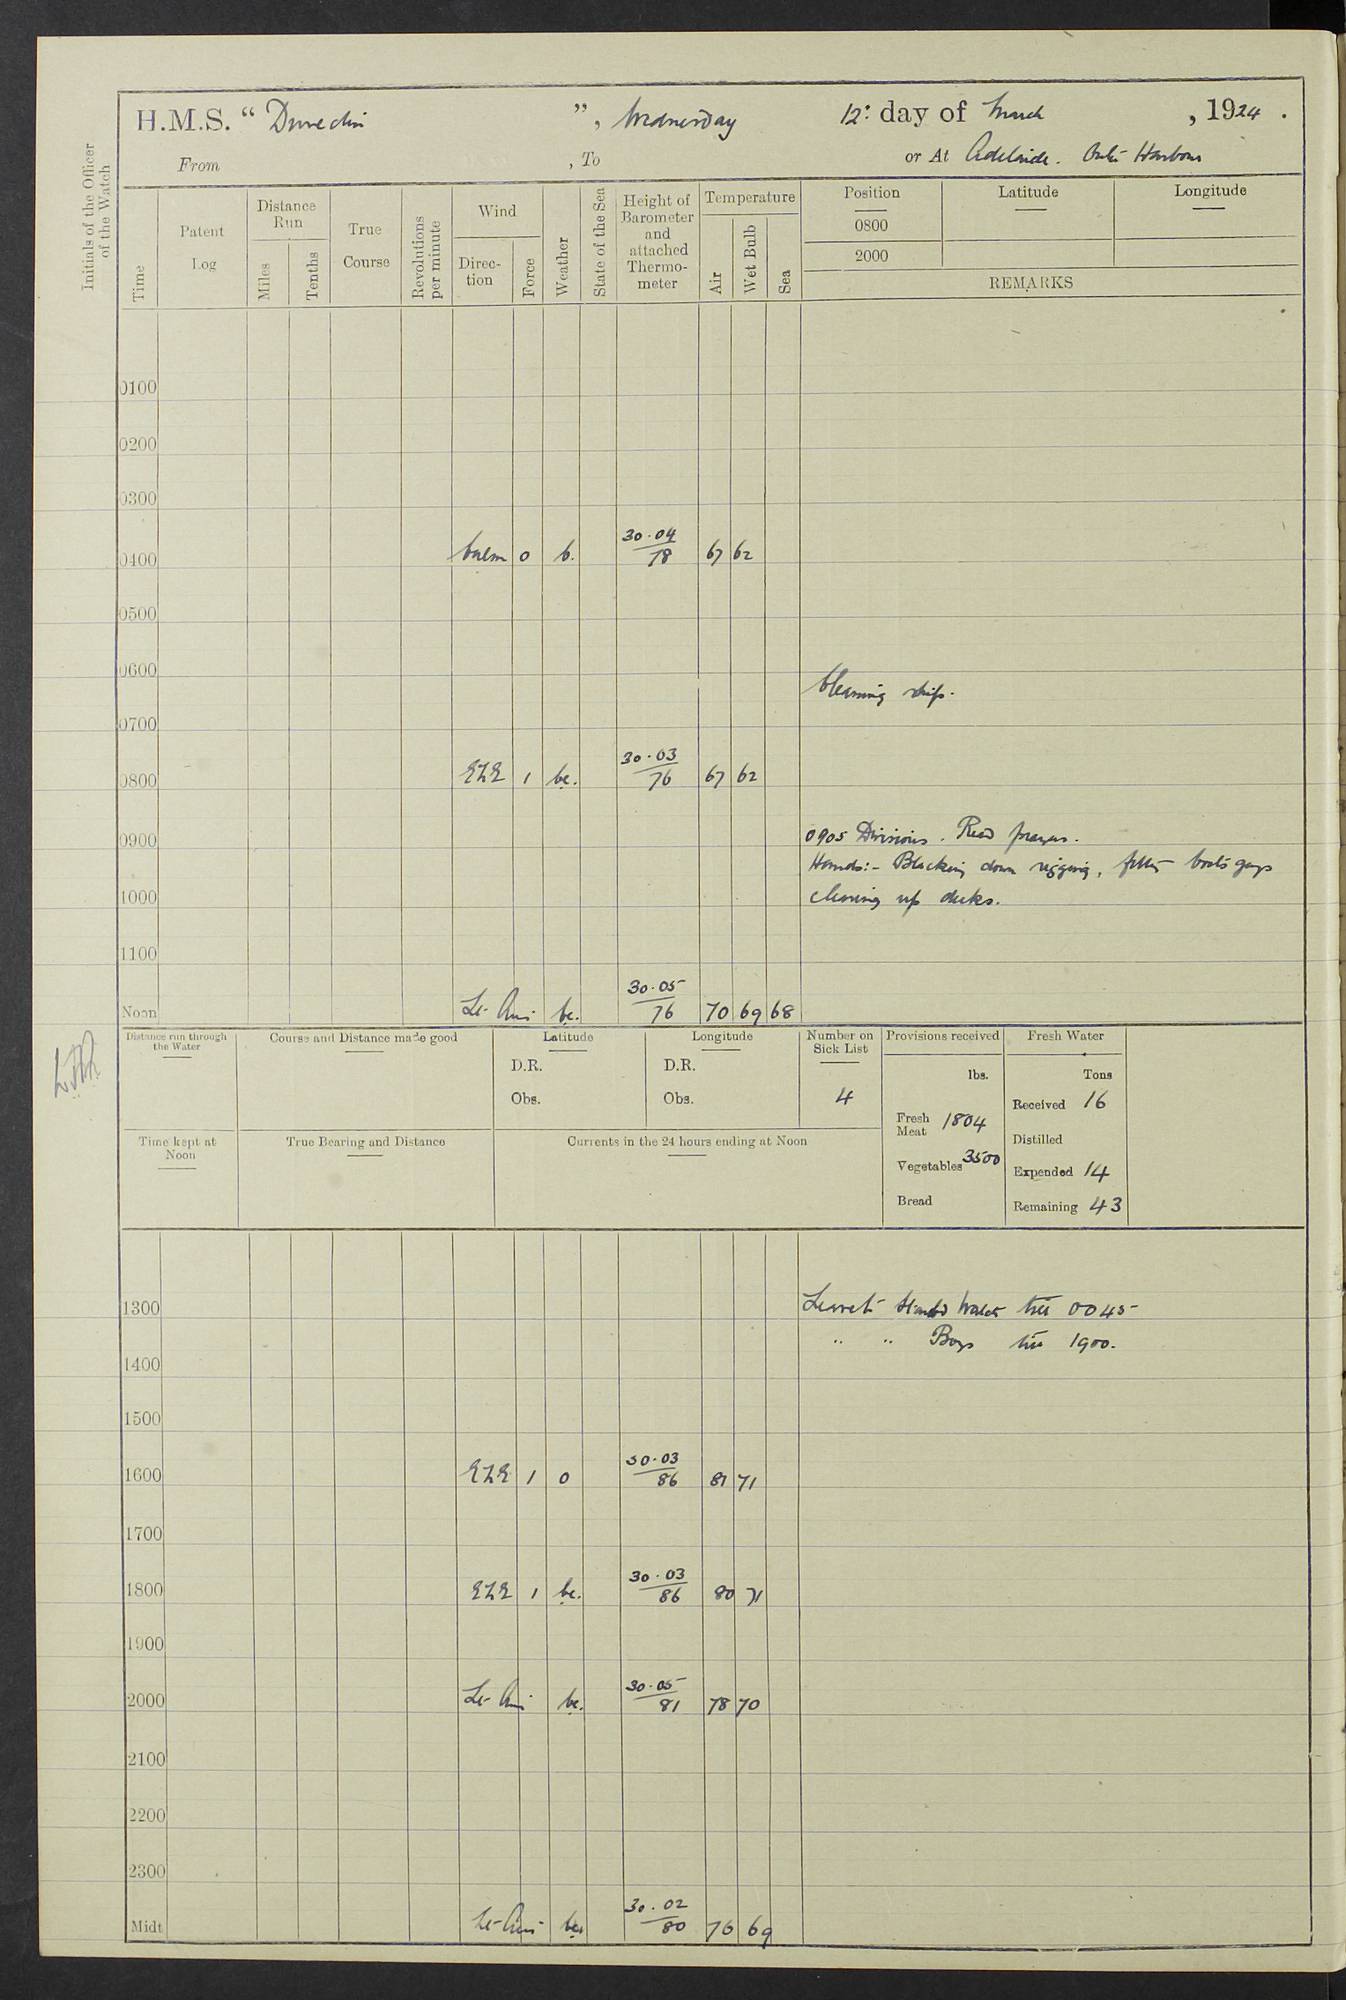 H.M.S. " Dunedin ", Wednesday 12: day of March , 1924 .
From , To or At Adelaide. Outer Harbour
Initials of the Officer
of the Watch
Time
Patent
Log
Distance
Run
Miles
Tenths
True
Course
Revolutions
per minute
Wind
Direc-
tion
Force
Weather
State of the Sea
Height of
Barometer
and
attached
Thermo-
meter
Temperature
Air
Wet Bulb
Sea
Position Latitude Longitude
0800
2000
REMARKS
0100
0200
0300
30.04
0400 Calm 0 b. 78 67 62
0500
0600
Cleaning ship.
0700
30.03
0800 ESE 1 bc. 76 67 62
0900 0905 Divisions. Read prayers.
Hands:- Blacking down rigging, boats guys
1000 clearing up decks.
1100
30.05
Noon Lt. Airs bc. 76 70 69 68
Distance run through
the Water
Course and Distance made good
Latitude
D.R.
Obs.
Longitude
D.R.
Obs.
Number on
Sick List
4
Provisions received
lbs.
Fresh
Meat 1804
Vegetables 3500
Bread
Fresh Water
Tons
Received 16
Distilled
Expended 14
Remaining 43
Time kept at
Noon
True Bearing and Distance
Currents in the 24 hours ending at Noon
1300 Leave to Starbd Watch till 0045
" " Boys till 1900.
1400
1500
30.03
1600 ESE 1 o 86 81 71
1700
30.03
1800 ESE 1 bc. 86 80 71
1900
30.05
2000 Lt. Airs bc. 81 78 70
2100
2200
2300
30.02
Midt Lt. Airs bc. 80 76 69